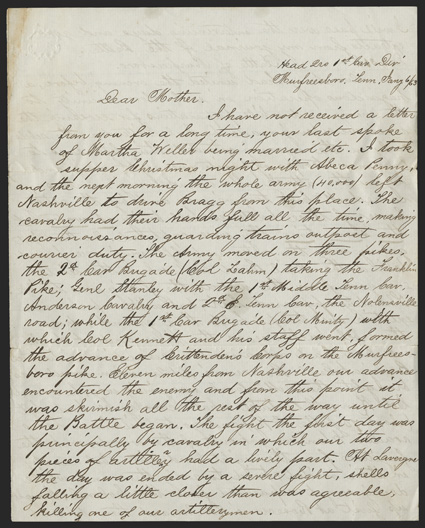 Head Qrs 1st Cav. Div
Murfreesboro, Tenn, Jany 6/63
Dear Mother.
I have not received a letter
from you for a long time, your last spoke
of Martha Weller being married etc. I took
supper Christmas night with Abeca Penny,
and the next morning the whole army (40,000) left
Nashville to drive Bragg from this place. The
cavalry had their hands full all the time, making
reconnoisances, guarding trains outpost and
courier duty. The Army moved on three pikes,
the 2d Cav Brigade (Col Zahm) taking the Franklin
Pike; Genl Stanley with the 1st Middle Tenn Cav.
Anderson Cavalry and 2d E. Tenn Cav, the Nolensville
road; while the 1st Cav Brigade (Col Minty) with
which Col Kennett and his staff went, formed
the advance of Crittenden's Corps on the Murfrees-
boro pike. Eleven miles from Nashville our advance
encountered the enemy and from this point it
was skirmish all the rest of the way until
the Battle began. The fight the first day was
principally by cavalry in which our two
pieces of artillery had a lively part. At Lavergne
the day was ended by a severe fight, shells
falling a little closer than was agreeable,
killing one of our artillerymen.